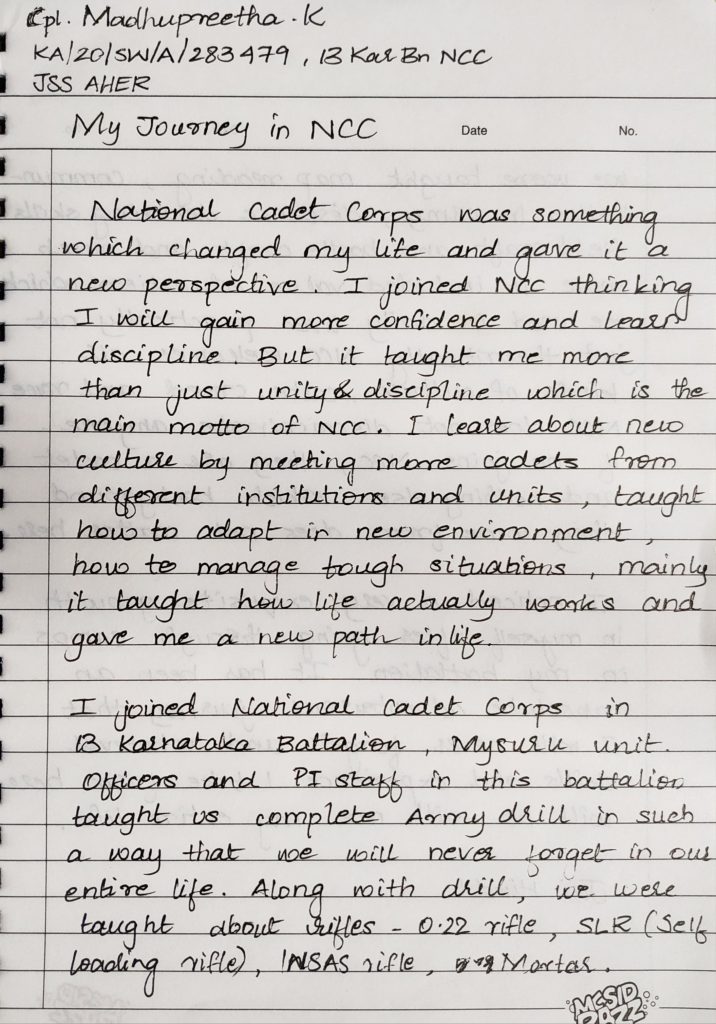 Cpl. Madhupreetha.K
KA/20/SW/A/283479, 13 Kar Bn NCC
JSS AHER
My Journey in NCC Date No.
National Cadet Corps was something
which changed my life and gave it a
new perspective. I joined NCC thinking
I will gain more confidence and learn
discipline. But it taught me more
than just unity & discipline which is the
main motto of NCC. I leart about new
culture by meeting more cadets from
different institutions and units, taught
how to adapt in new environment,
how to manage tough situations, mainly
it taught how life actually works and
gave me a new path in life.
I joined National Cadet Corps in
13 Karnataka Battalion, Mysuru unit.
Officers and PI staff in this battalion
taught us complete Army drill in such
a way that we will never forget in our
entire life. Along with drill, we were
taught about rifles - 0.22 rifle, SLR (Self
loading rifle), INSAS rifle, Mortar.